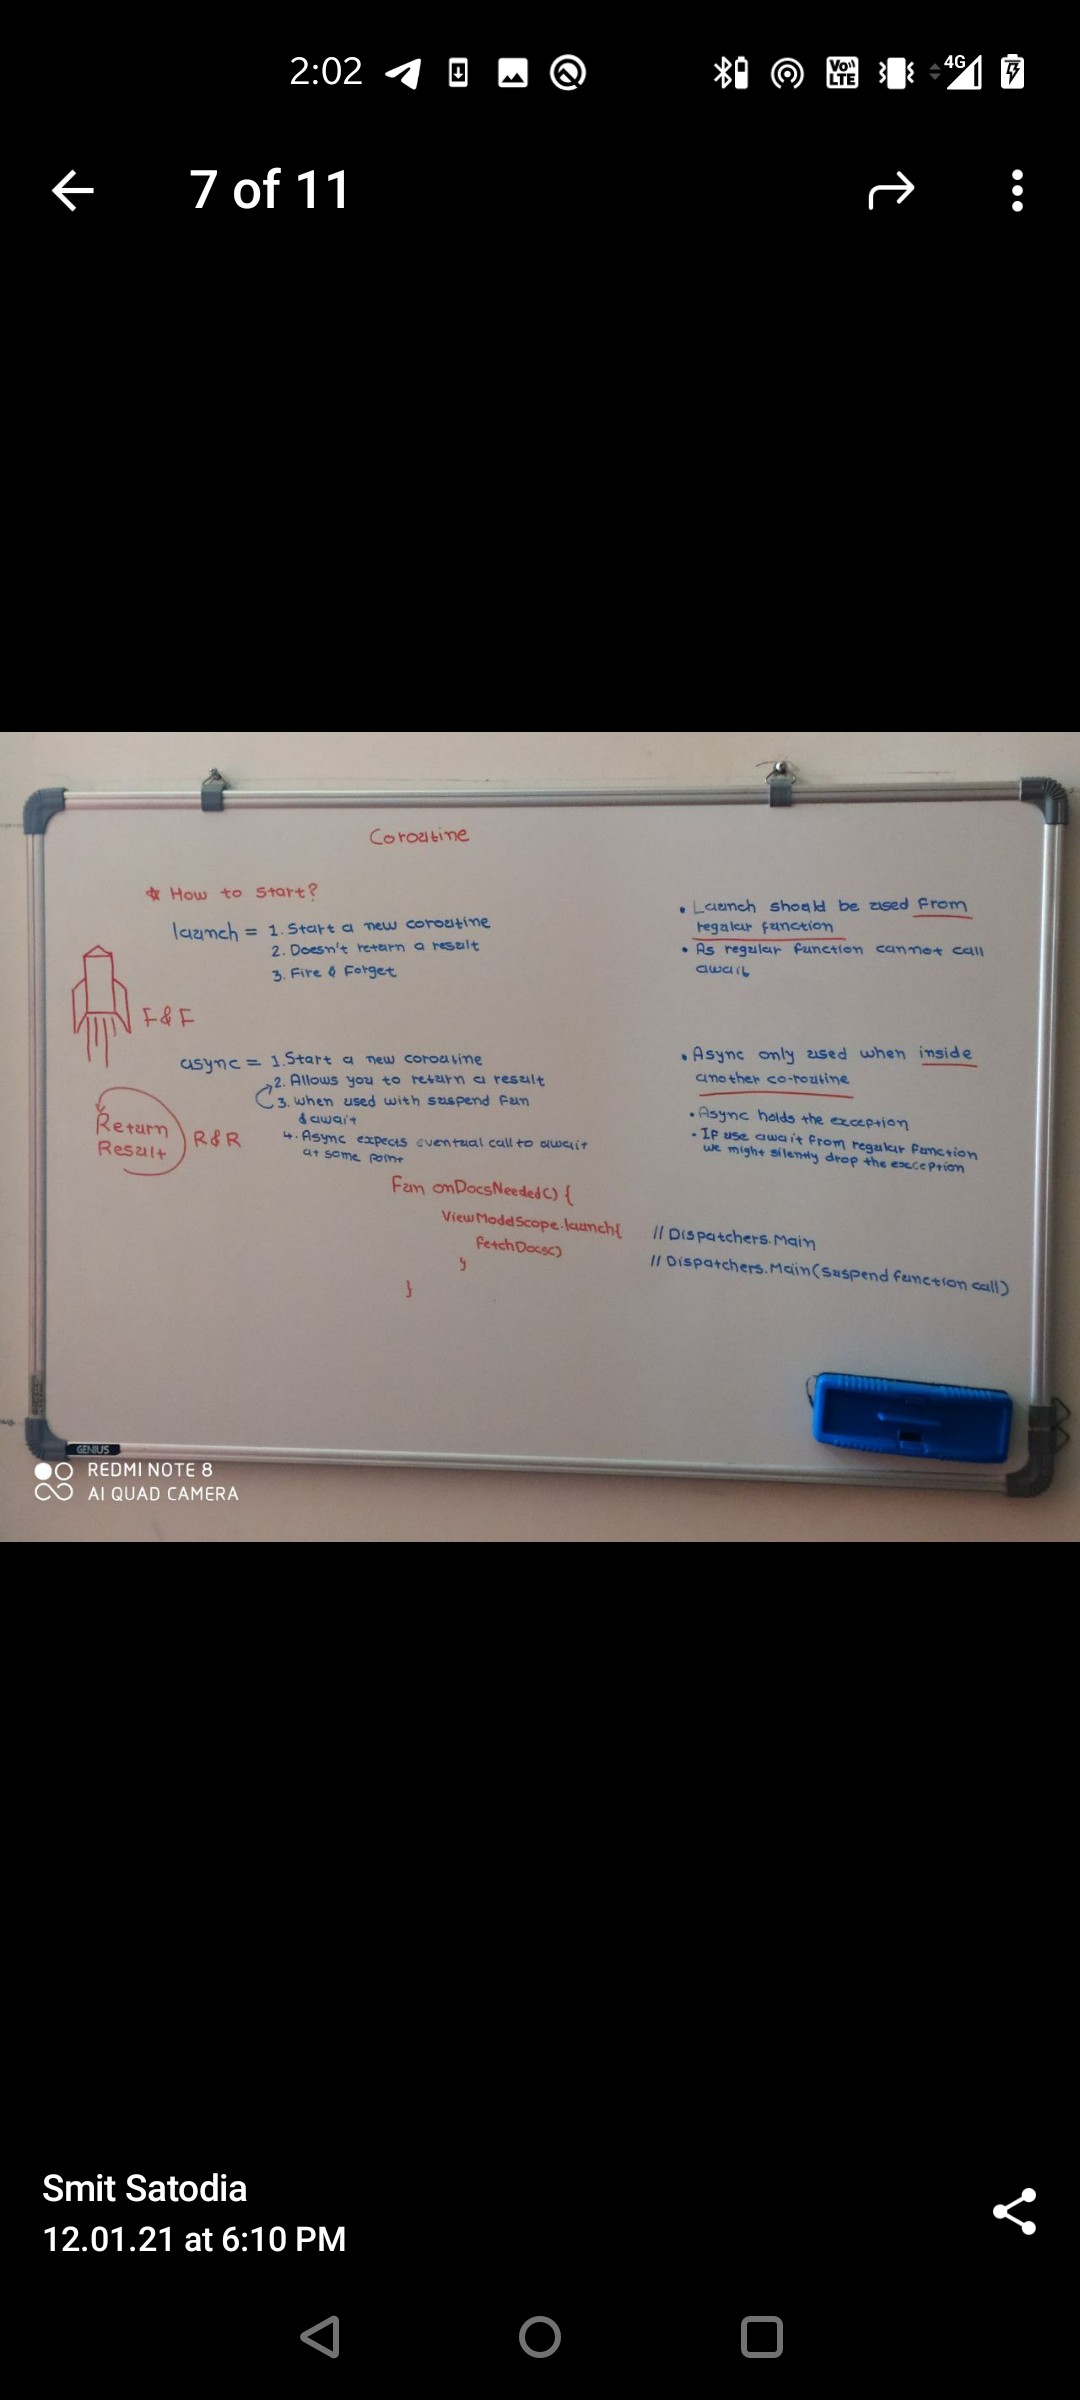 2:02
4G
VoLTE
7 of 11
Coroutine
☆ How to start?
launch = 1. Start a new coroutine
2. Doesn't return a result
3. Fire & Forget
F&F
• Launch should be used from
regular function
• As regular function cannot call
await
async = 1. Start a new coroutine
2. Allows you to return a result
3. when used with suspend fun
& await
4. Async expects eventual call to await
at some point
Return
Result
R&R
• Async only used when inside
another co-routine
• Async holds the exception
• If use await from regular function
we might silently drop the exception
Fun onDocsNeeded() {
ViewModelScope.launch{ // Dispatchers.Main
fetchDocs() // Dispatchers.Main(suspend function call)
}
}
GENIUS
REDMI NOTE 8
AI QUAD CAMERA
Smit Satodia
12.01.21 at 6:10 PM